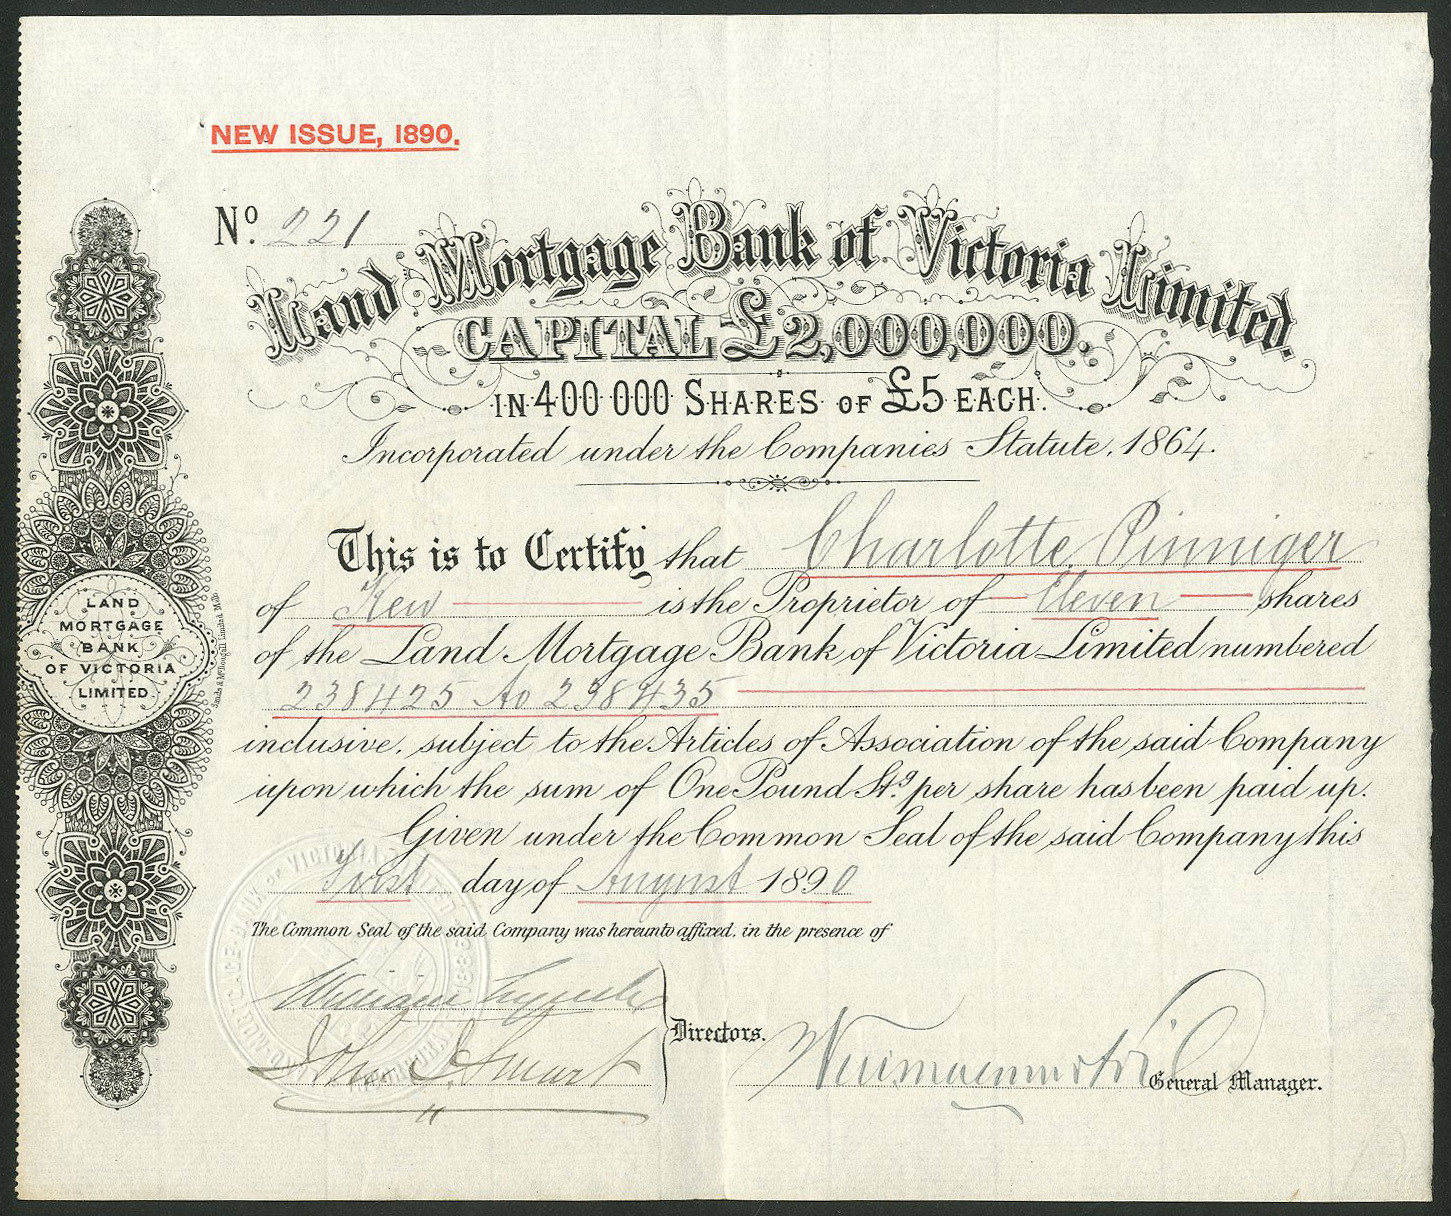 NEW ISSUE, 1890.
Nº 221
Land Mortgage Bank of Victoria Limited.
CAPITAL £2,000,000.
IN 400 000 SHARES OF £5 EACH.
Incorporated under the Companies Statute, 1864.
This is to Certify that Charlotte Pinniger
of Kew is the Proprietor of Eleven shares
of the Land Mortgage Bank of Victoria Limited numbered
238425 to 238435
inclusive, subject to the Articles of Association of the said Company
upon which the sum of One Pound Stg. per share has been paid up.
Given under the Common Seal of the said Company this
First day of August 1890
The Common Seal of the said Company was hereunto affixed, in the presence of
William Lynch
John J. Smart
Directors.
General Manager.
LAND
MORTGAGE
BANK
OF VICTORIA
LIMITED.
Sands & McDougall Limited Melb.